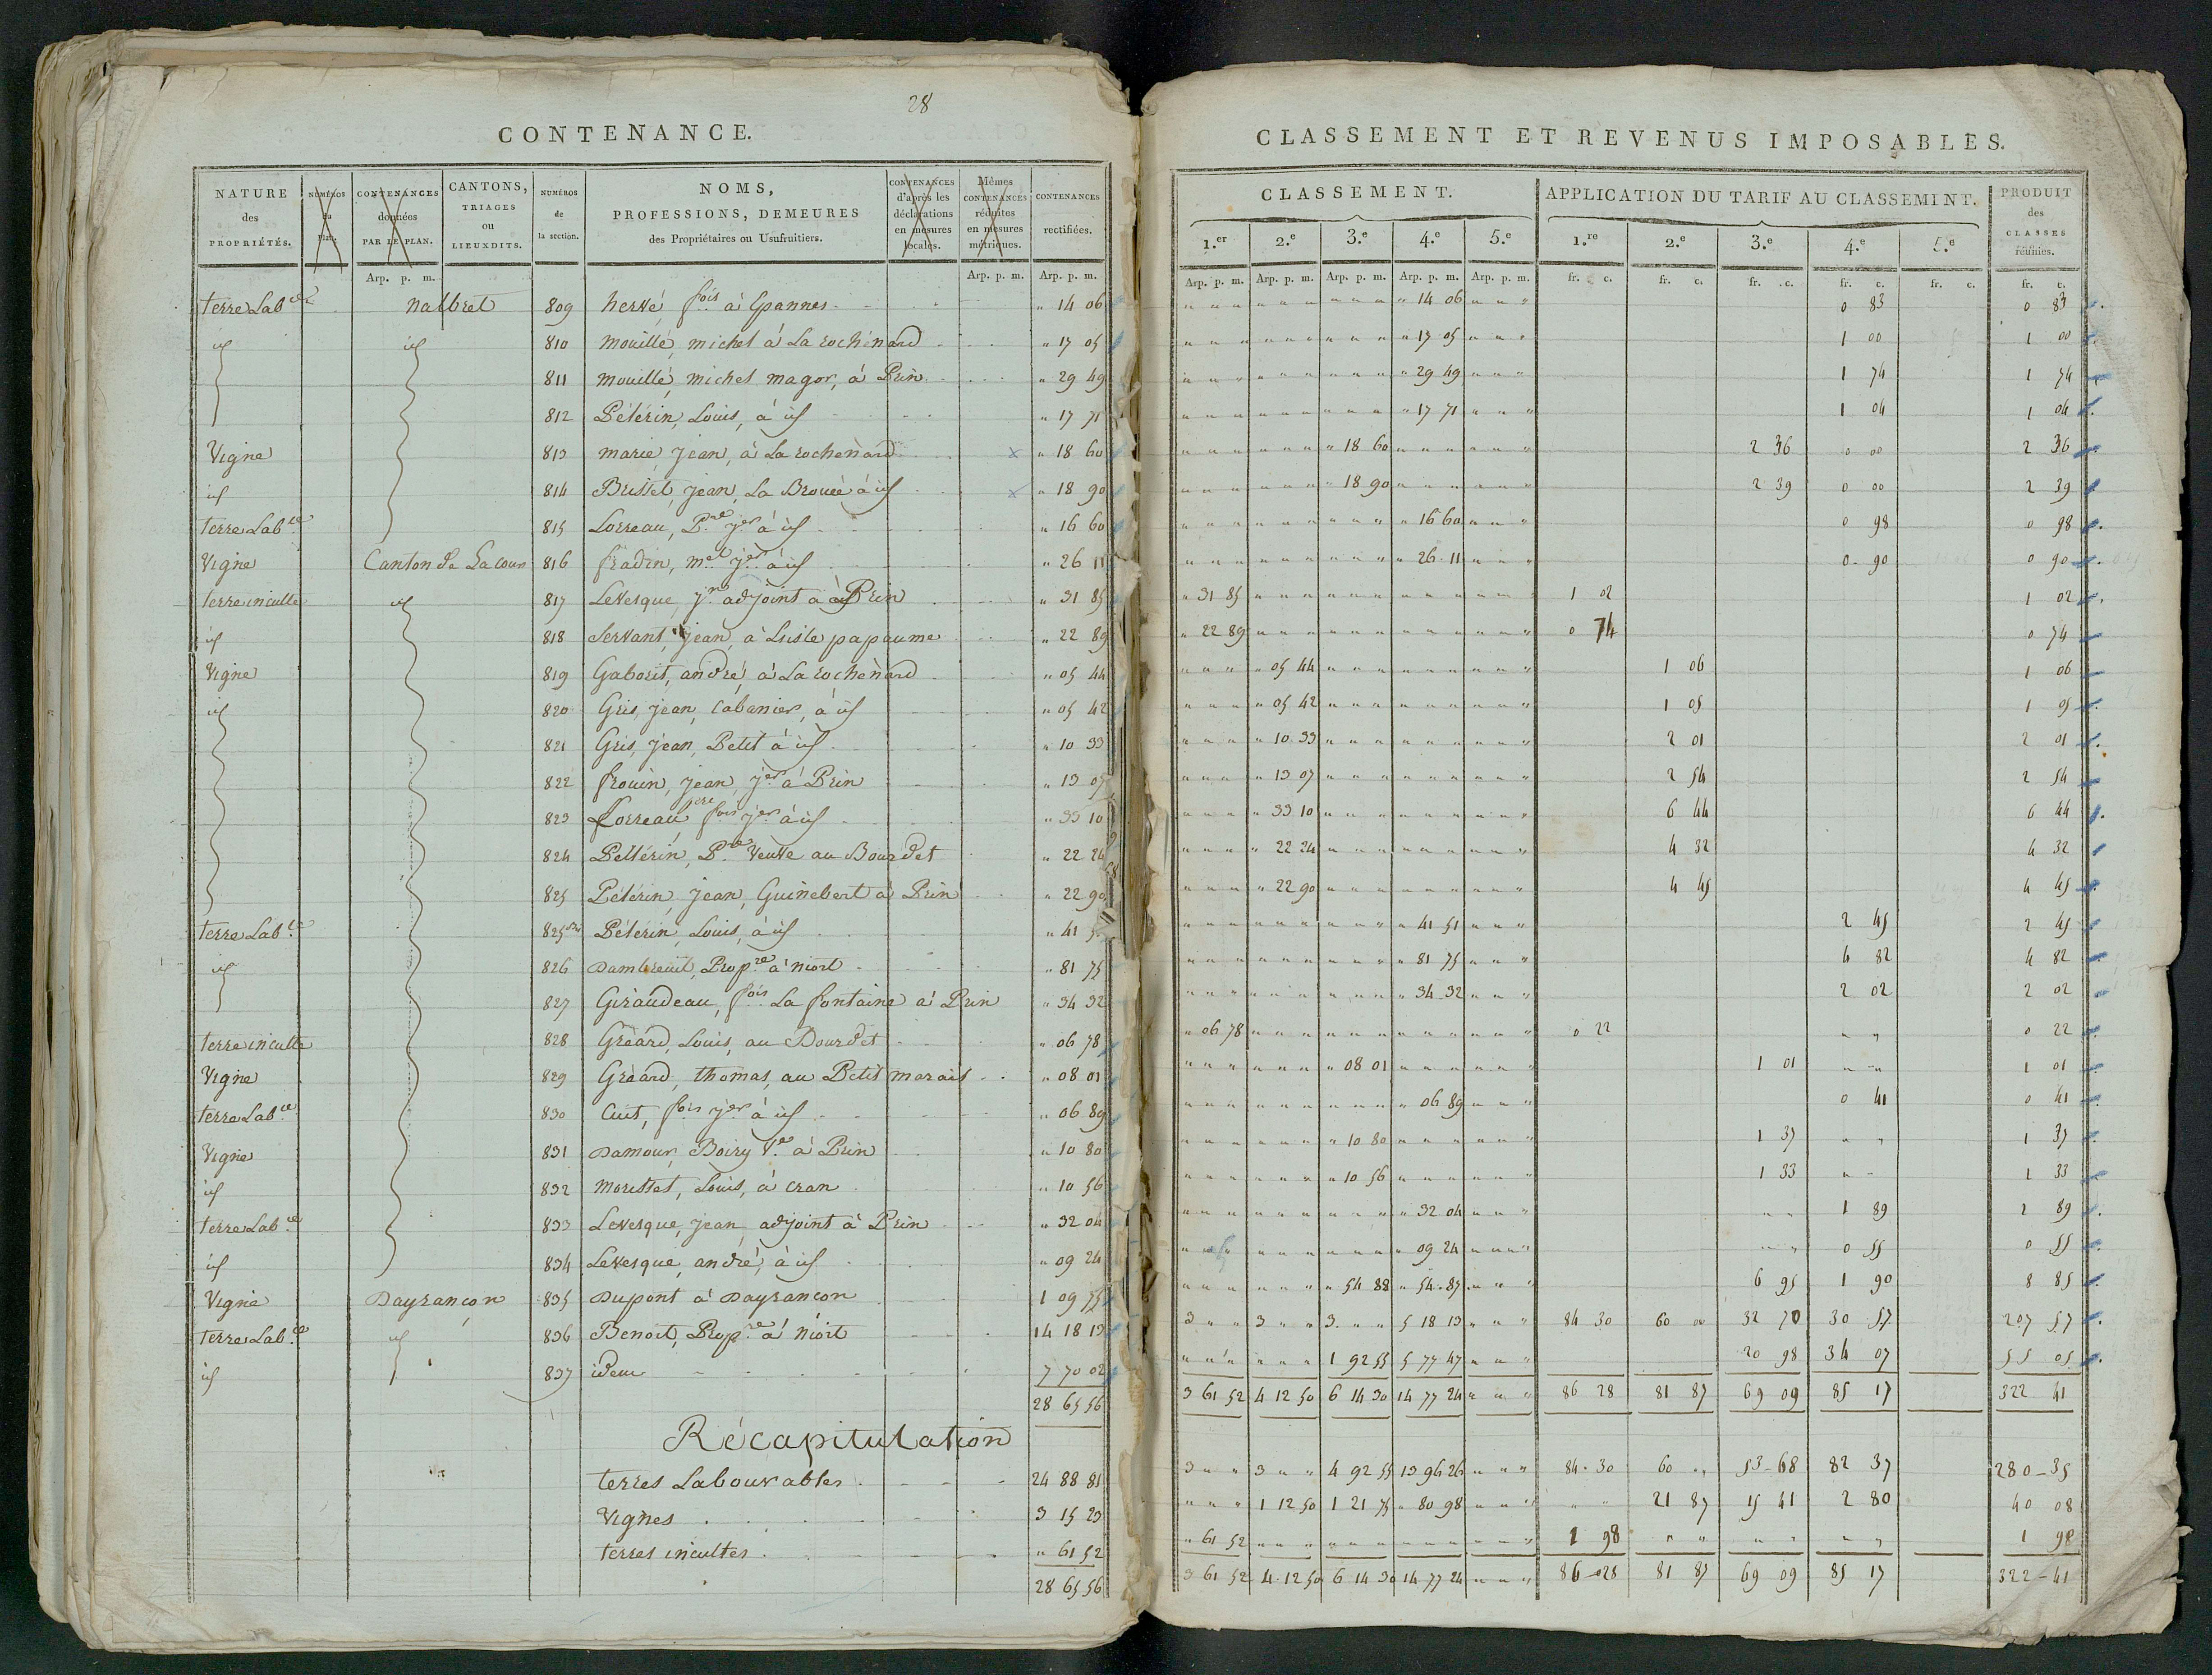 28
CONTENANCE.
NATURE des PROPRIÉTÉS. | NUMÉROS du Plan. | CONTENANCES données PAR LE PLAN. | CANTONS, TRIAGES ou LIEUXDITS. | NUMÉROS de la section. | NOMS, PROFESSIONS, DEMEURES des Propriétaires ou Usufruitiers. | CONTENANCES d'après les déclarations en mesures locales. | Mêmes CONTENANCES réduites en mesures métriques. | CONTENANCES rectifiées.
Arp. p. m. | Arp. p. m. | Arp. p. m.
terre Lab.ce nalbret 809 hervé, fois à Epannes " 14 06
id id 810 mouillé, michel à La rochénard " 17 05
811 mouillé, michel magor, à Prin " 29 49
812 Pélérin, Louis, à id " 17 71
Vigne 813 marié, jean, à La rochenard x " 18 60
id 814 Brisset, jean, La Brouée à id x " 18 90
terre Lab.ce 815 Lorreau, P.re jer à id " 16 60
Vigne Canton de La cour 816 fradin, m.el jer à id " 26 11
terre inculte id 817 Levesque, jn adjoint à Prin " 31 85
id 818 Servant, jean, à Lisle papaume " 22 89
Vigne 819 Gaborit, andré, à La rochenard " 05 44
id 820 Gris, jean, Cabanier, à id " 05 42
821 Gris, jean, Petit à id " 10 33
822 frouin, jean, jer à Prin " 13 07
823 Lorreau fois jer à id " 33 10
824 Pellérin, P.re Veuve au Bourdet " 22 24
825 Pélérin, jean, Guinebert à Prin " 22 90
terre Lab.ce 825 bis Pélérin, Louis, à id " 41
id 826 Dambreuil, Prop.re à niort " 81 75
827 Giraudeau, fois La fontaine à Prin " 34 32
terre inculte 828 Gréard, Louis, au Bourdet " 06 78
Vigne 829 Gréard, thomas, au Petit marais " 08 01
terre Lab.ce 830 Cuit, fois jer à id " 06 89
Vigne 831 Damour, Boiry V.e à Prin " 10 80
id 832 morisset, Louis, à cran " 10 56
terre Lab.ce 833 Levesque, jean, adjoint à Prin " 32 04
id 834 Levesque, andré, à id " 09 24
Vigne Dayrançon 835 Dupont à Dayrancon 1 09 75
terre Lab.ce id 836 Benoit, Prop.re à niort 14 18 13
id 837 idem 7 70 02
28 65 56
Récapitulation
terres Labourables 24 88 81
Vignes 3 15 23
terres incultes " 61 52
28 65 56
CLASSEMENT ET REVENUS IMPOSABLES.
CLASSEMENT. | APPLICATION DU TARIF AU CLASSEMINT. | PRODUIT des CLASSES réunies.
1.er | 2.e | 3.e | 4.e | 5.e | 1.re | 2.e | 3.e | 4.e | 5.e
Arp. p. m. | Arp. p. m. | Arp. p. m. | Arp. p. m. | Arp. p. m. | fr. c. | fr. c. | fr. c. | fr. c. | fr. c. | fr. c.
" 14 06 0 83 0 83
" 17 05 1 00 1 00
" 29 49 1 74 1 74
" 17 71 1 04 1 04
" 18 60 2 36 0 00 2 36
" 18 90 2 39 0 00 2 39
" 16 60 0 98 0 98
" 26 11 0 90 0 90
" 31 85 1 02 1 02
" 22 89 0 74 0 74
" 05 44 1 06 1 06
" 05 42 1 05 1 05
" 10 33 2 01 2 01
" 13 07 2 54 2 54
" 33 10 6 44 6 44
" 22 24 4 32 4 32
" 22 90 4 45 4 45
" 41 51 2 45 2 45
" 81 75 4 82 4 82
" 34 32 2 02 2 02
" 06 78 0 22 " " 0 22
" 08 01 1 01 " " 1 01
" 06 89 0 41 0 41
" 10 80 1 37 " " 1 37
" 10 56 1 33 " " 1 33
" 32 04 " " 1 89 1 89
" 09 24 " " 0 55 0 55
" 54 88 " 54 87 6 95 1 90 8 85
3 " " 3 " " 3 " " 5 18 13 " " " 84 30 60 00 32 70 30 57 207 57
" " " " " " 1 92 55 5 77 47 " " " 20 98 34 07 55 05
3 61 52 4 12 50 6 14 30 14 77 24 " " " 86 28 81 87 69 09 85 17 322 41
3 " " 3 " " 4 92 55 13 96 26 " " " 84 30 60 " 53 68 82 37 280 35
" " " 1 12 50 1 21 75 " 80 98 " " " " " 21 87 15 41 2 80 40 08
" 61 52 " " " " " " " " " " " " 1 98 " " " " " " 1 98
3 61 52 4 12 50 6 14 30 14 77 24 " " " 86 28 81 87 69 09 85 17 322 41